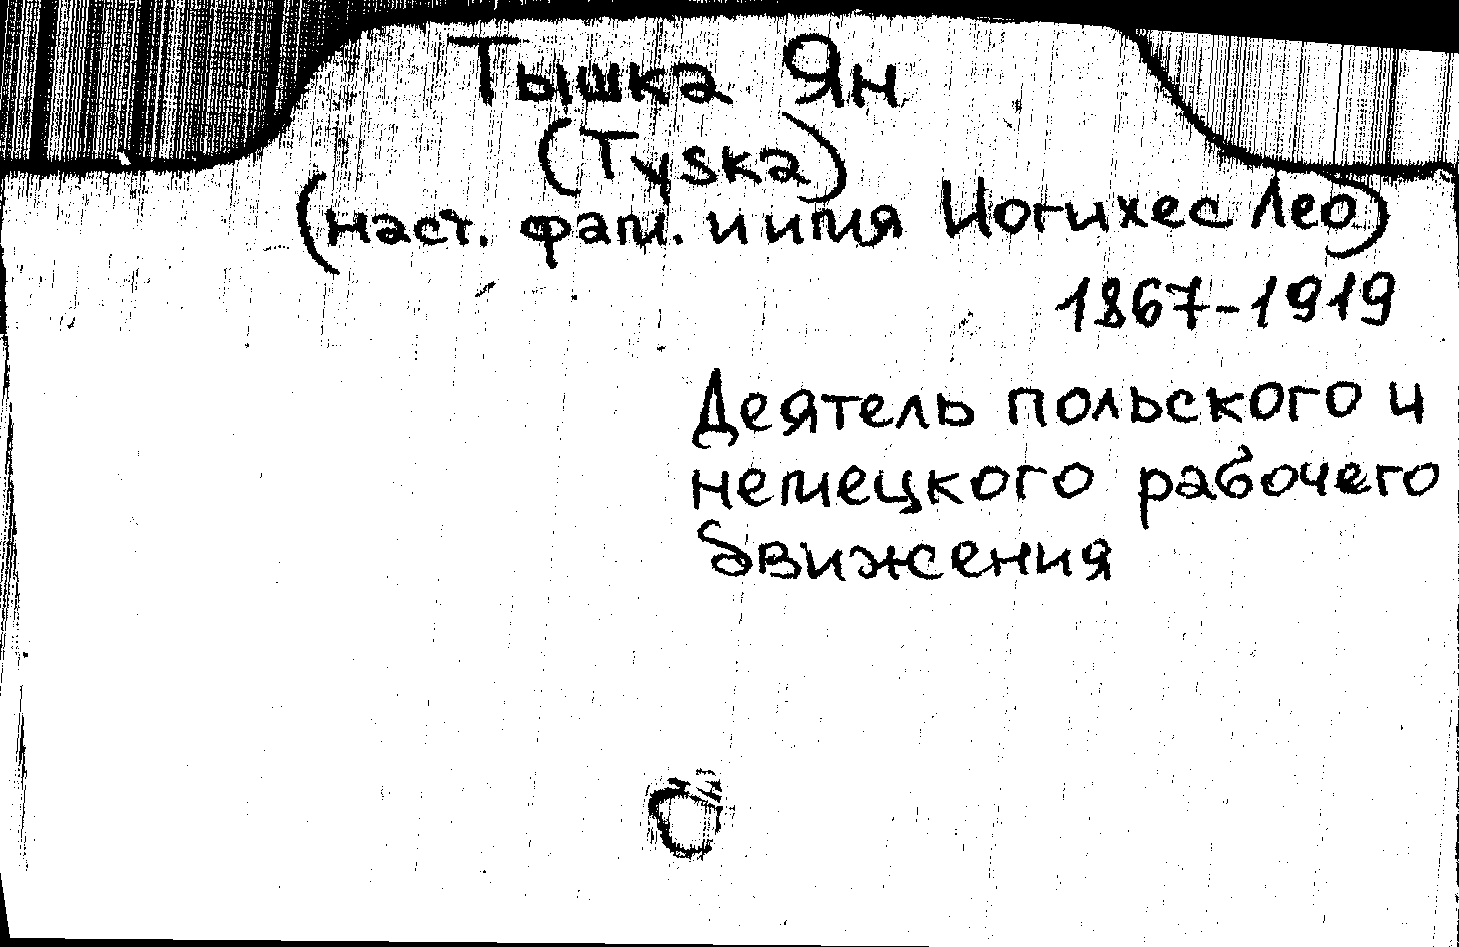 Тышка Ян
(Tyska)
(наст. фам. и имя Иогихес Лео)
1867-1919
Деятель польского и
немецкого рабочего
движения